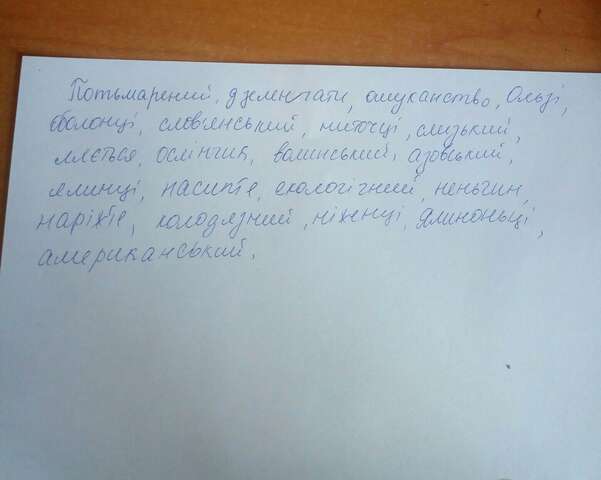 Потьмарений, дзеленчати, ошуканство, Ользі,
оболонці, слов'янський, ниточці, слизький,
ллється, ослінчик, волинський, азовський,
ялинці, насипте, екологічний, неньчин,
наріжте, колодязний, ніженці, ялиноньці,
американський.